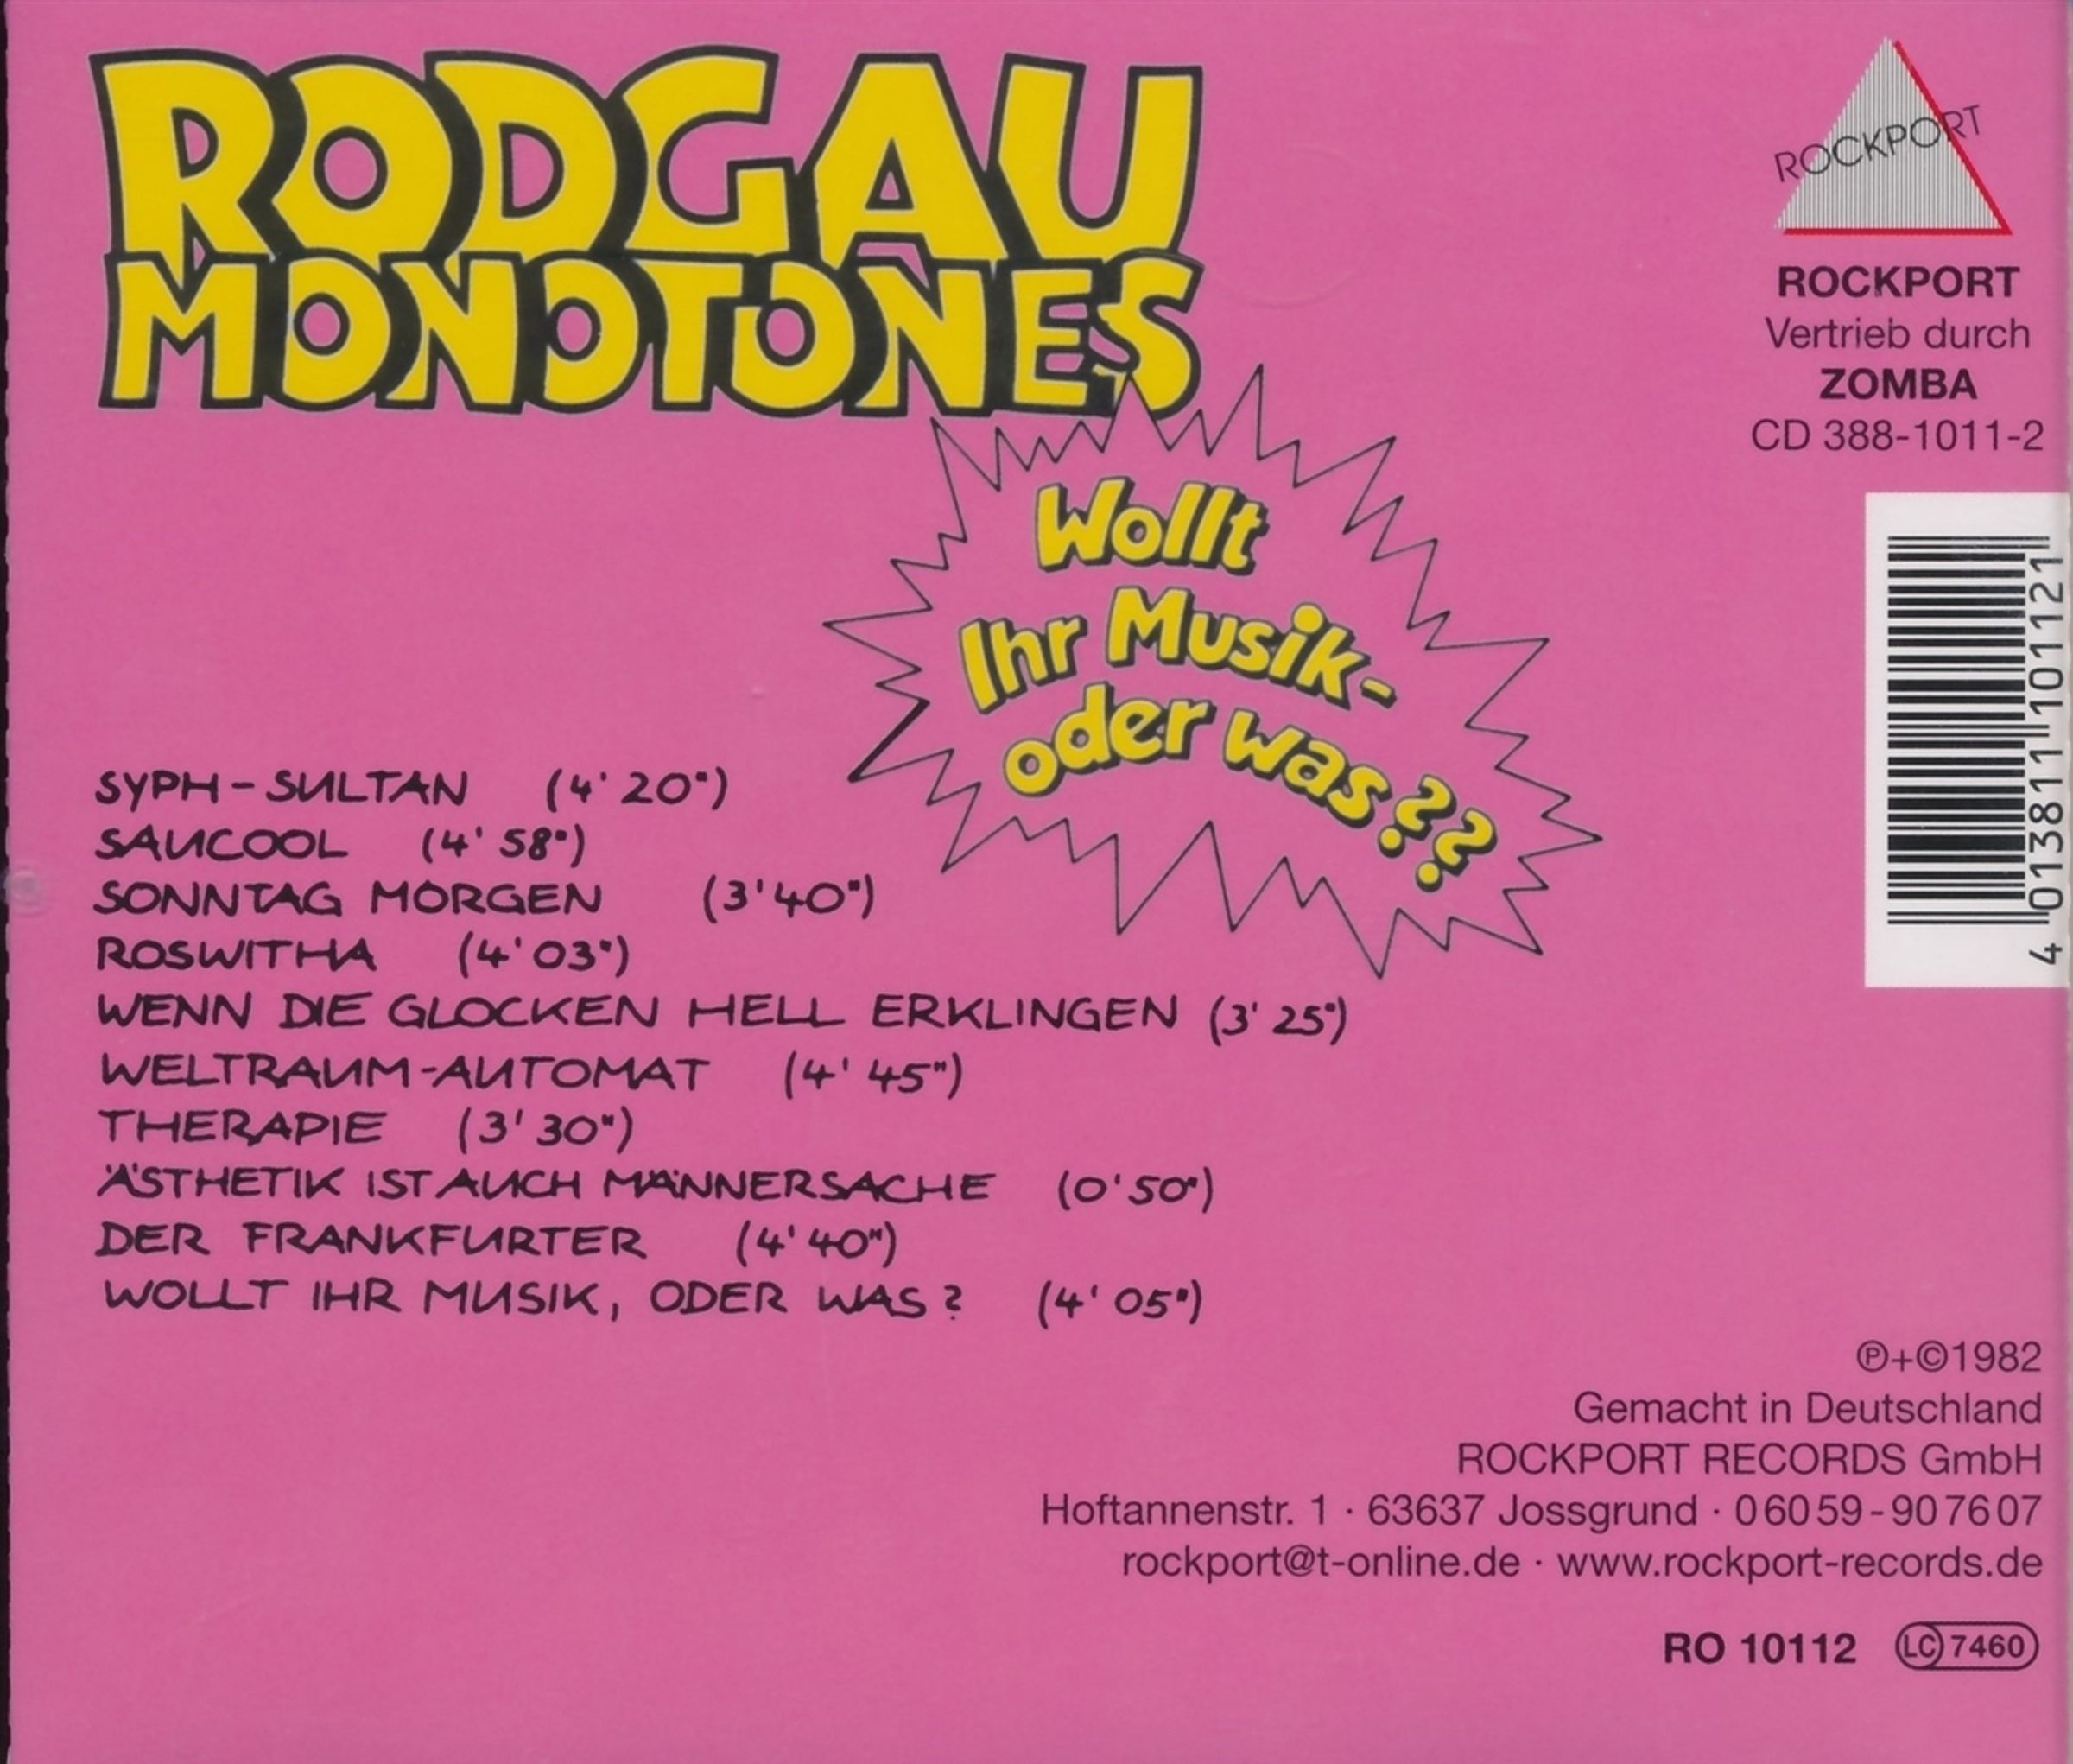 RODGAU
MONOTONES
Wollt
Ihr Musik-
oder was??
ROCKPORT
ROCKPORT
Vertrieb durch
ZOMBA
CD 388-1011-2
4 013811 101121
SYPH-SULTAN (4' 20")
SAUCOOL (4' 58")
SONNTAG MORGEN (3'40")
ROSWITHA (4' 03")
WENN DIE GLOCKEN HELL ERKLINGEN (3' 25")
WELTRAUM-AUTOMAT (4' 45")
THERAPIE (3' 30")
ÄSTHETIK IST AUCH MÄNNERSACHE (0'50")
DER FRANKFURTER (4' 40")
WOLLT IHR MUSIK, ODER WAS? (4' 05")
℗+©1982
Gemacht in Deutschland
ROCKPORT RECORDS GmbH
Hoftannenstr. 1 · 63637 Jossgrund · 06059-907607
rockport@t-online.de · www.rockport-records.de
RO 10112 LC 7460